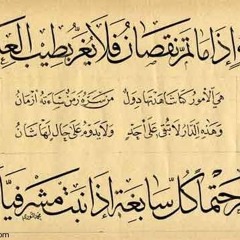 إذا ما تم نقصان فلا يغر بطيب
هي الأمور كما شاهدتها دول من سره زمن ساءته أزمان
وهذه الدار لا تبقي على أحد ولا يدوم على حال لها شان
حتما كل سابغة إذا نبت مشرفيا